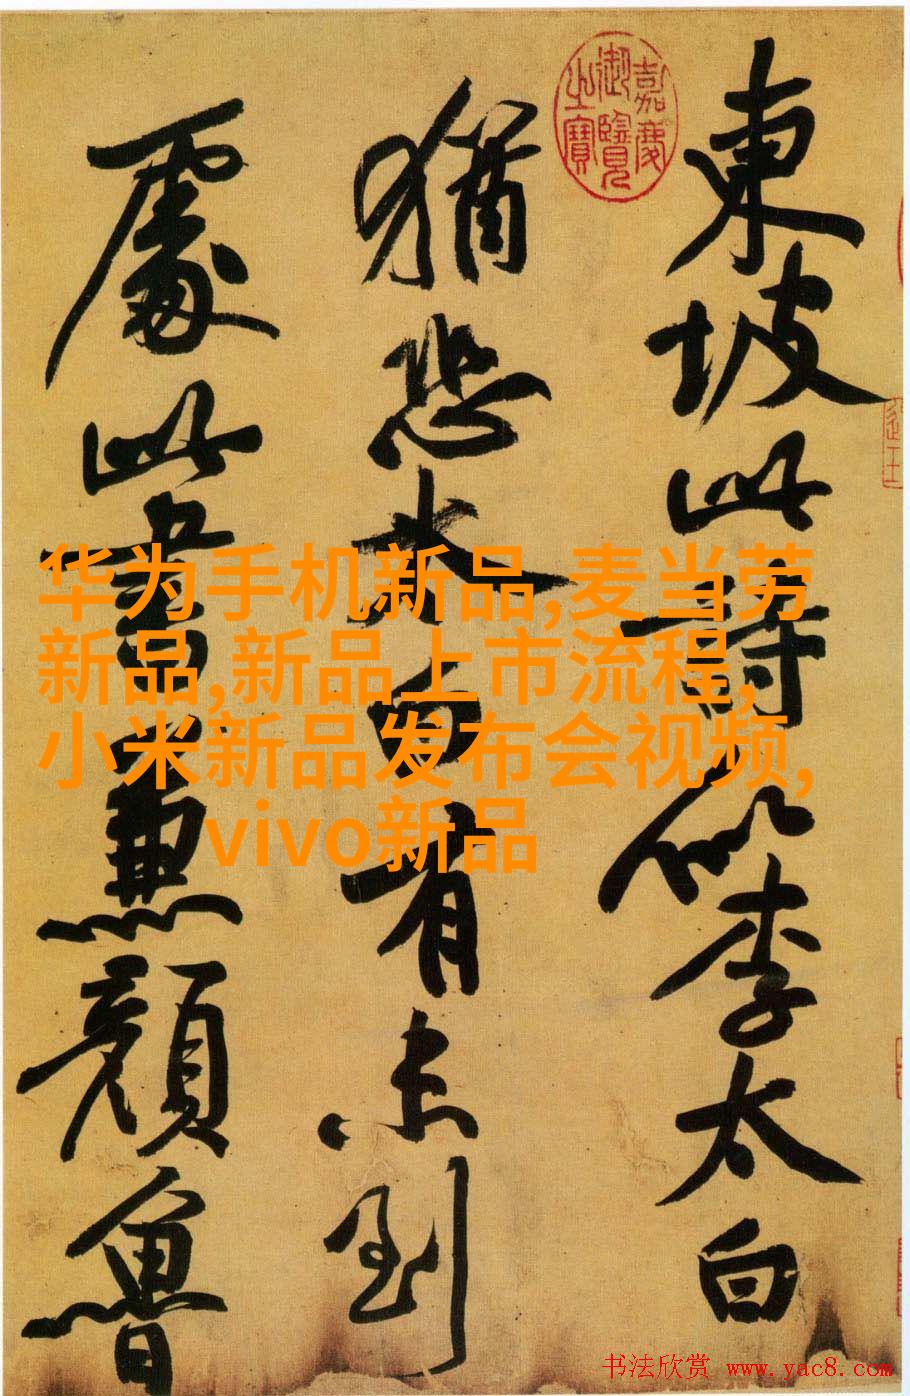 東坡此詩似李太白
猶恐太白有未到
處此書兼顏魯
嘉慶
御覽
之寶
华为手机新品,麦当劳
新品,新品上市流程,
小米新品发布会视频,
vivo新品
书法欣赏 www.yac8.com